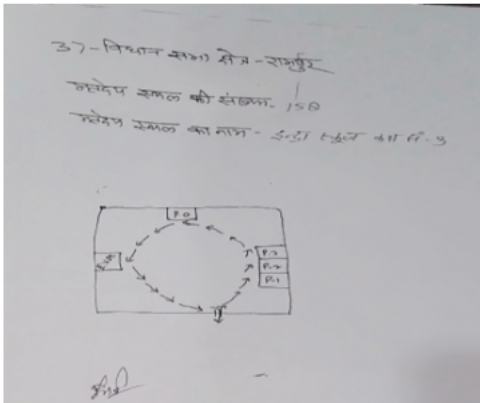 37-विधान सभा क्षेत्र - रामपुर
मतदेय स्थल की संख्या - 150
मतदेय स्थल का नाम - इन्द्रा स्कूल क० नं०
P.0
P.3
P.2
P.1